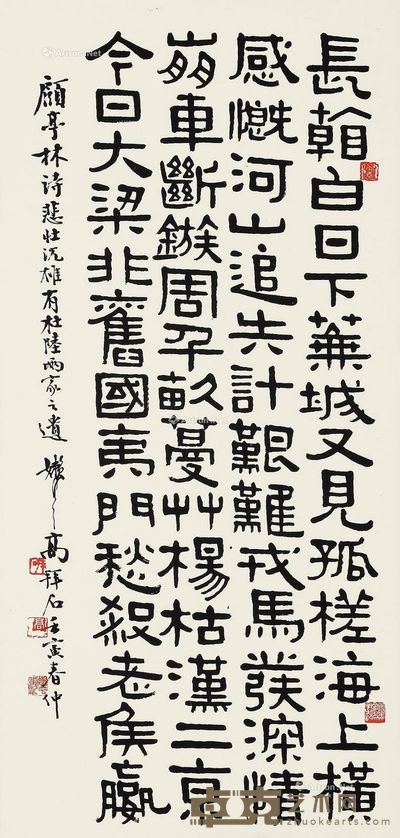 長翰白日下蕪城又見孤槎海上橫
感慨河山追失計艱難戎馬發深情
崩車斷鏃周千畝蔓艸楊枯漢二京
今日大梁非舊國夷門愁殺老侯嬴
顧亭林詩悲壯沉雄有杜陸兩家之遺 高拜石壬寅春仲
卓克艺术网
zhuokearts.com